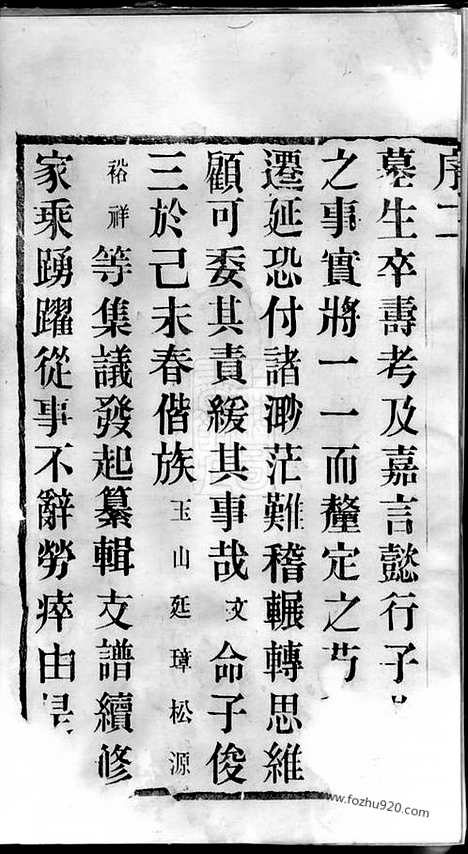 序二
墓生卒壽考及嘉言懿行子
之事實將一一而釐定之苟
遷延恐付諸渺茫難稽輾轉思維
顧可委其責緩其事哉文命子俊
三於己未春偕族玉山延璋松源
裕祥等集議發起纂輯支譜續修
家乘踴躍從事不辭勞瘁由是
www.fozhu920.com